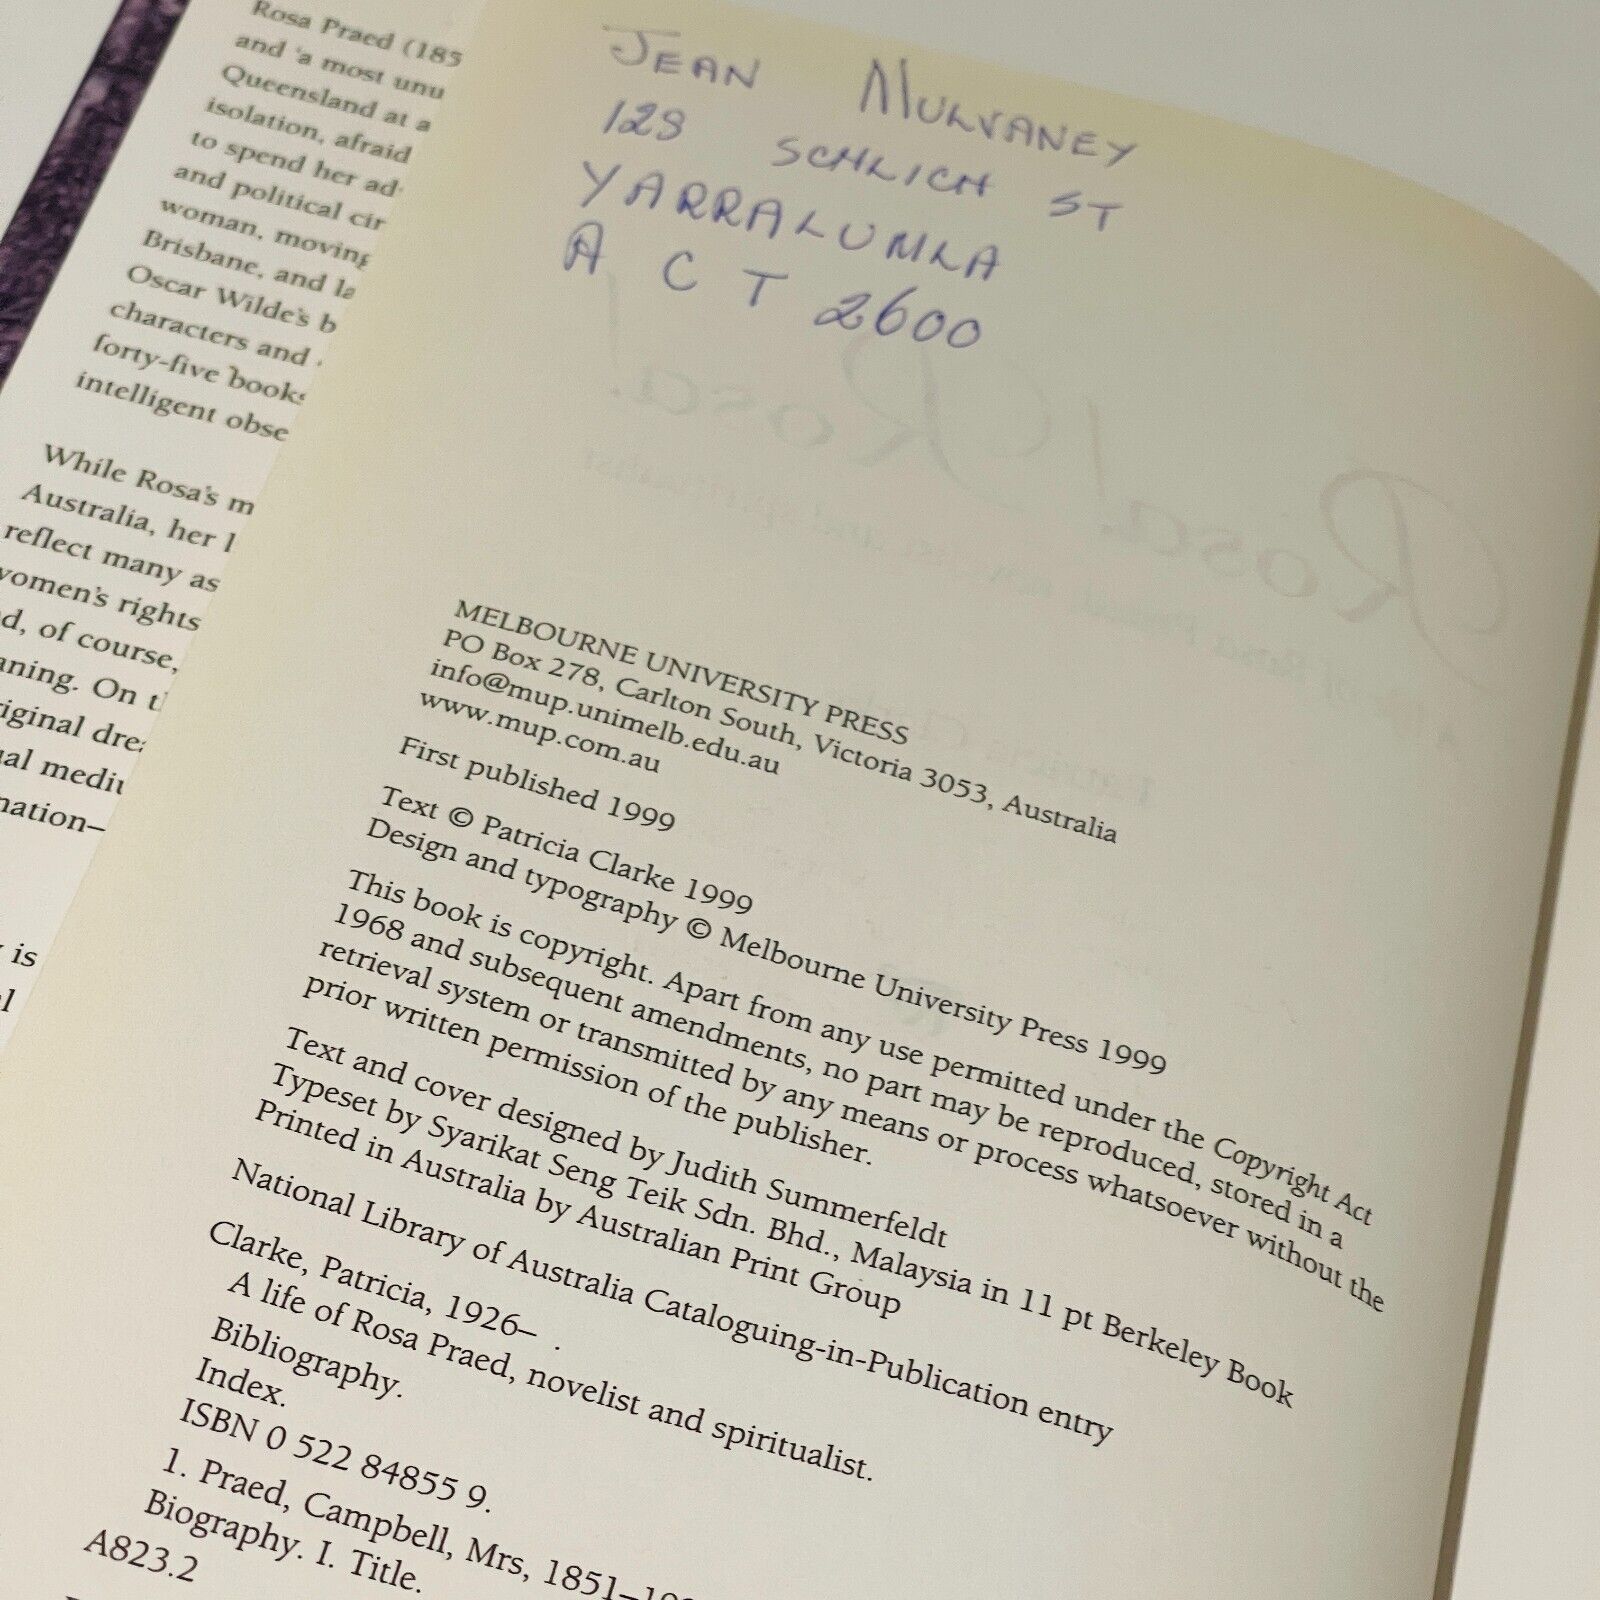 Rosa Praed (185
and 'a most unu
Queensland at a
isolation, afraid
to spend her ad
and political cir
woman, moving
Brisbane, and la
Oscar Wilde's b
characters and
forty-five books
intelligent obse
While Rosa's m
Australia, her l
reflect many as
women's rights
d, of course,
nning. On t
riginal drea
ual mediu
nation–
is
JEAN MULVANEY
128 SCHLICH ST
YARRALUMLA
A C T 2600
Rosa! Rosa!
MELBOURNE UNIVERSITY PRESS
PO Box 278, Carlton South, Victoria 3053, Australia
info@mup.unimelb.edu.au
www.mup.com.au
First published 1999
Text © Patricia Clarke 1999
Design and typography © Melbourne University Press 1999
This book is copyright. Apart from any use permitted under the Copyright Act
1968 and subsequent amendments, no part may be reproduced, stored in a
retrieval system or transmitted by any means or process whatsoever without the
prior written permission of the publisher.
Text and cover designed by Judith Summerfeldt
Typeset by Syarikat Seng Teik Sdn. Bhd., Malaysia in 11 pt Berkeley Book
Printed in Australia by Australian Print Group
National Library of Australia Cataloguing-in-Publication entry
Clarke, Patricia, 1926– .
A life of Rosa Praed, novelist and spiritualist.
Bibliography.
Index.
ISBN 0 522 84855 9.
1. Praed, Campbell, Mrs, 1851–19
Biography. I. Title.
A823.2